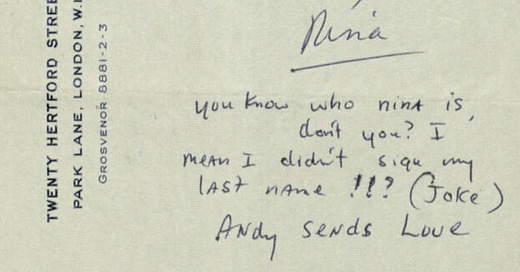 TWENTY HERTFORD STREE
PARK LANE, LONDON, W.I
GROSVENOR 8881-2-3
Nina
you know who nina is,
don't you? I
mean I didn't sign my
last name !!? (Joke)
Andy sends Love